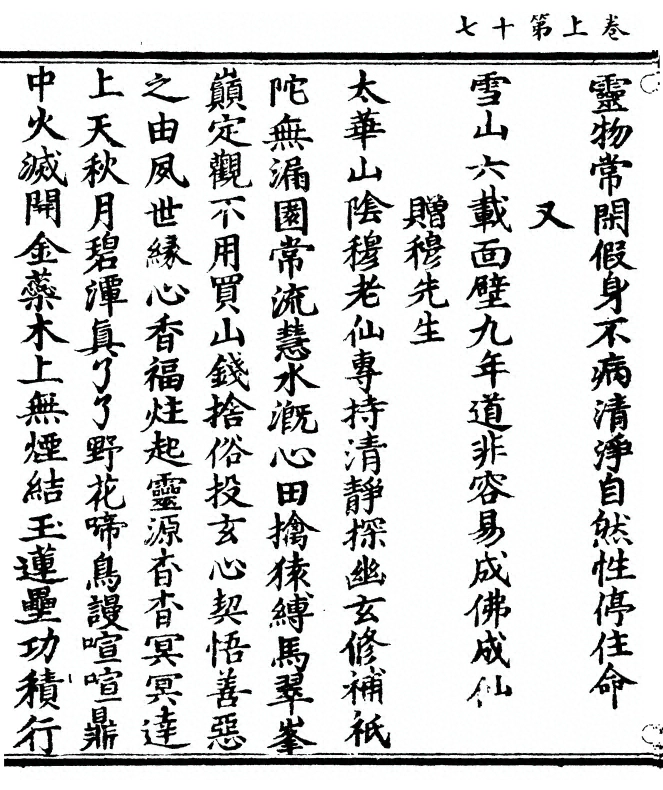 卷上第十七
靈物常閑假身不病清淨自然性停住命
又
雪山六載面壁九年道非容易成佛成仙
贈穆先生
太華山陰穆老仙專持清靜探幽玄修補祇
陀無漏園常流慧水溉心田擒猿縛馬翠峯
巔定觀不用買山錢捨俗投玄心契悟善惡
之由夙世緣心香福炷起靈源杳杳冥冥達
上天秋月碧潭真了了野花啼鳥謾喧喧鼎
中火滅開金蘂木上無煙結玉蓮壘功積行